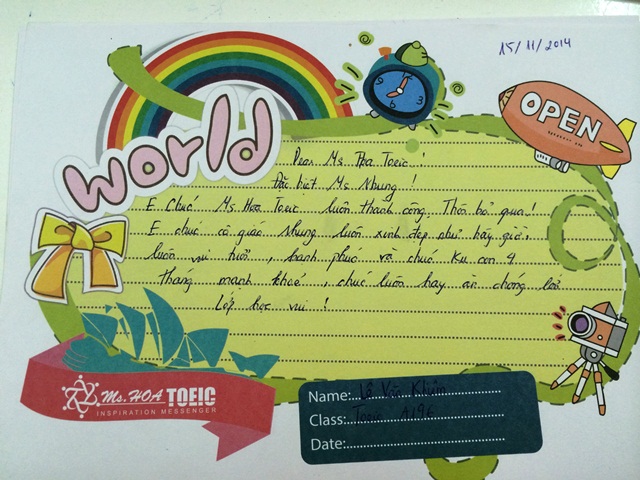 15/11/2014
world
OPEN
Dear Ms Hoa Toeic!
Đặc biệt Ms Nhung!
E chúc Ms Hoa Toeic luôn thành công.
E chúc cô giáo Nhung luôn xinh đẹp như bây giờ,
luôn vui , hạnh phúc và chúc ku con 4
tháng mạnh khoẻ , chúc luôn hay ăn chóng
Lớp học vui !
Ms. HOA TOEIC
INSPIRATION MESSENGER
Name: Lê Văn
Class: Toeic A196
Date: